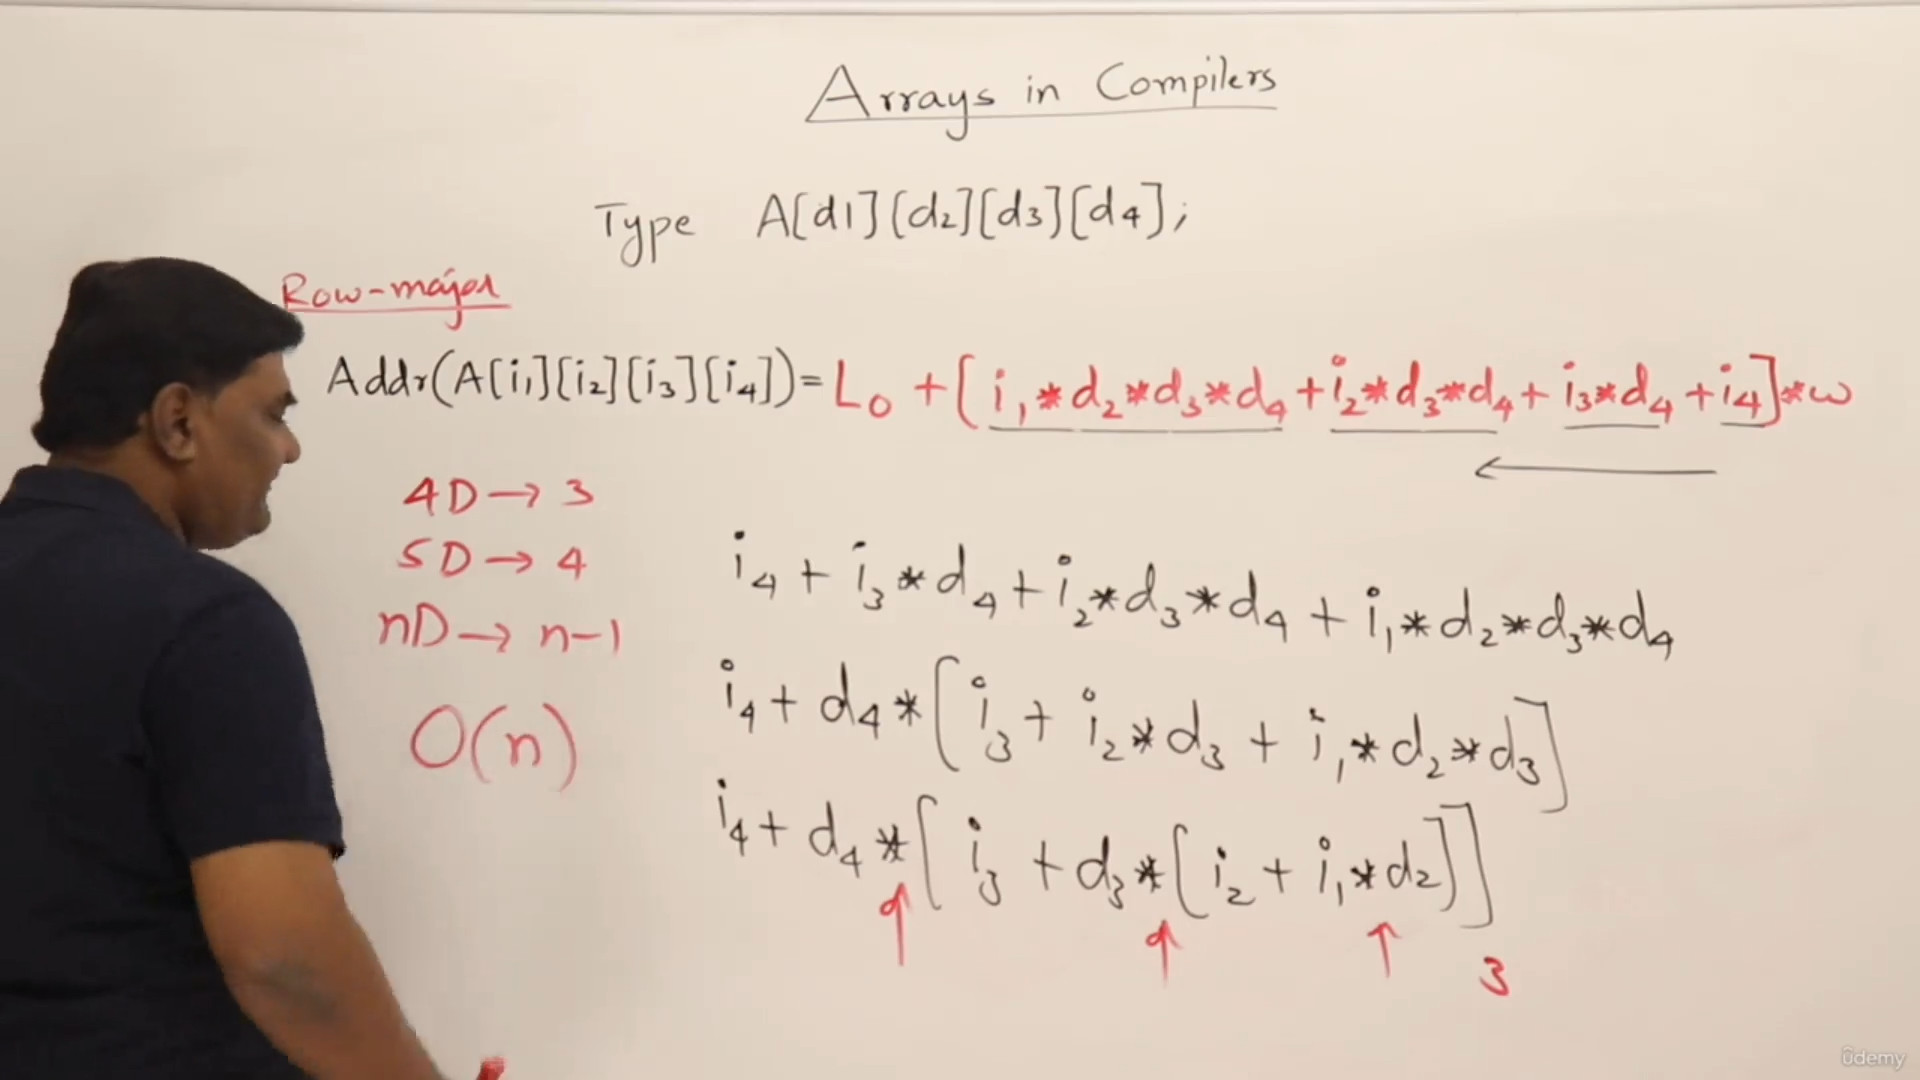 Arrays in Compilers
Type A[d1][d2][d3][d4];
Row-major
Addr(A[i₁][i₂][i₃][i₄]) = L₀ + [i₁*d₂*d₃*d₄ + i₂*d₃*d₄ + i₃*d₄ + i₄]*w
4D → 3
5D → 4
nD → n-1
O(n)
i₄ + i₃*d₄ + i₂*d₃*d₄ + i₁*d₂*d₃*d₄
i₄ + d₄*[i₃ + i₂*d₃ + i₁*d₂*d₃]
i₄ + d₄*[i₃ + d₃*[i₂ + i₁*d₂]]
3
ûdemy